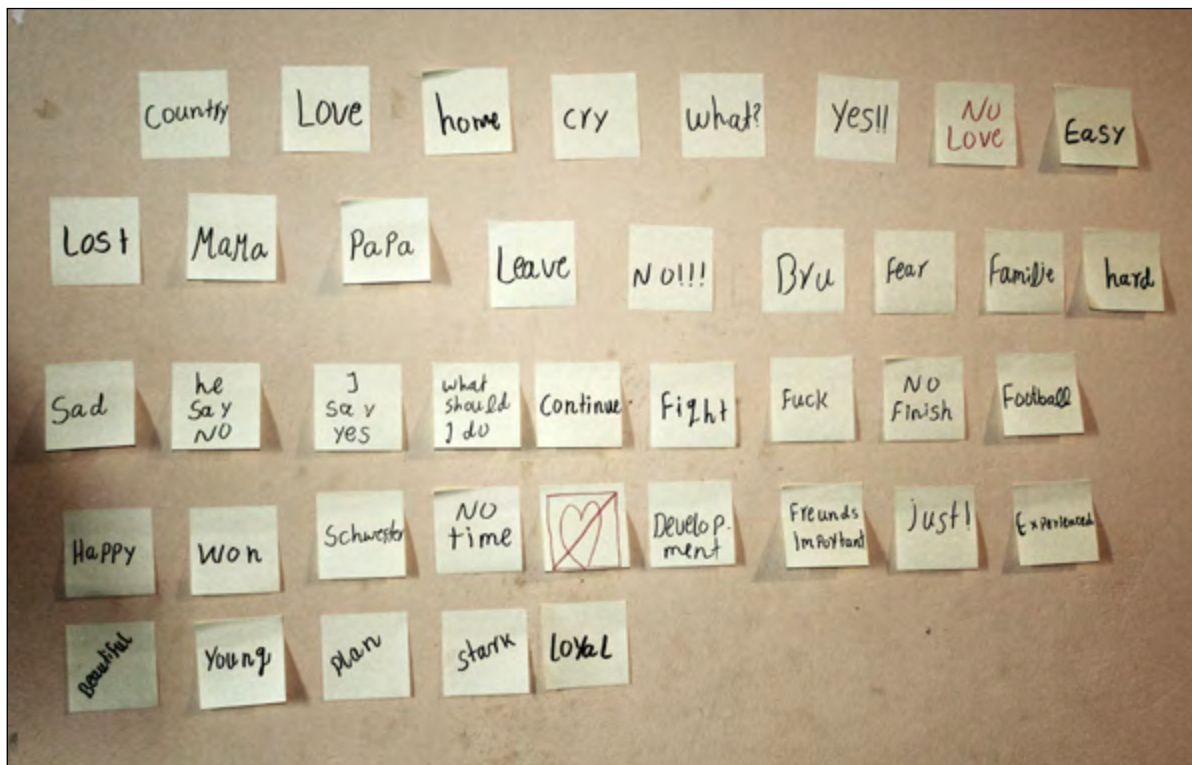 Country
Love
home
cry
what?
Yes!!
NO
LOVE
Easy
Lost
MaMa
PaPa
Leave
NO!!!
Bru
Fear
Familie
hard
Sad
he
say
NO
I
say
yes
what
should
I do
Continue
Fight
Fuck
NO
Finish
Football
Happy
won
Schwester
NO
time
Develop-
ment
Freunds
Important
just!
Experienced
Beautiful
Young
plan
stark
LOYaL